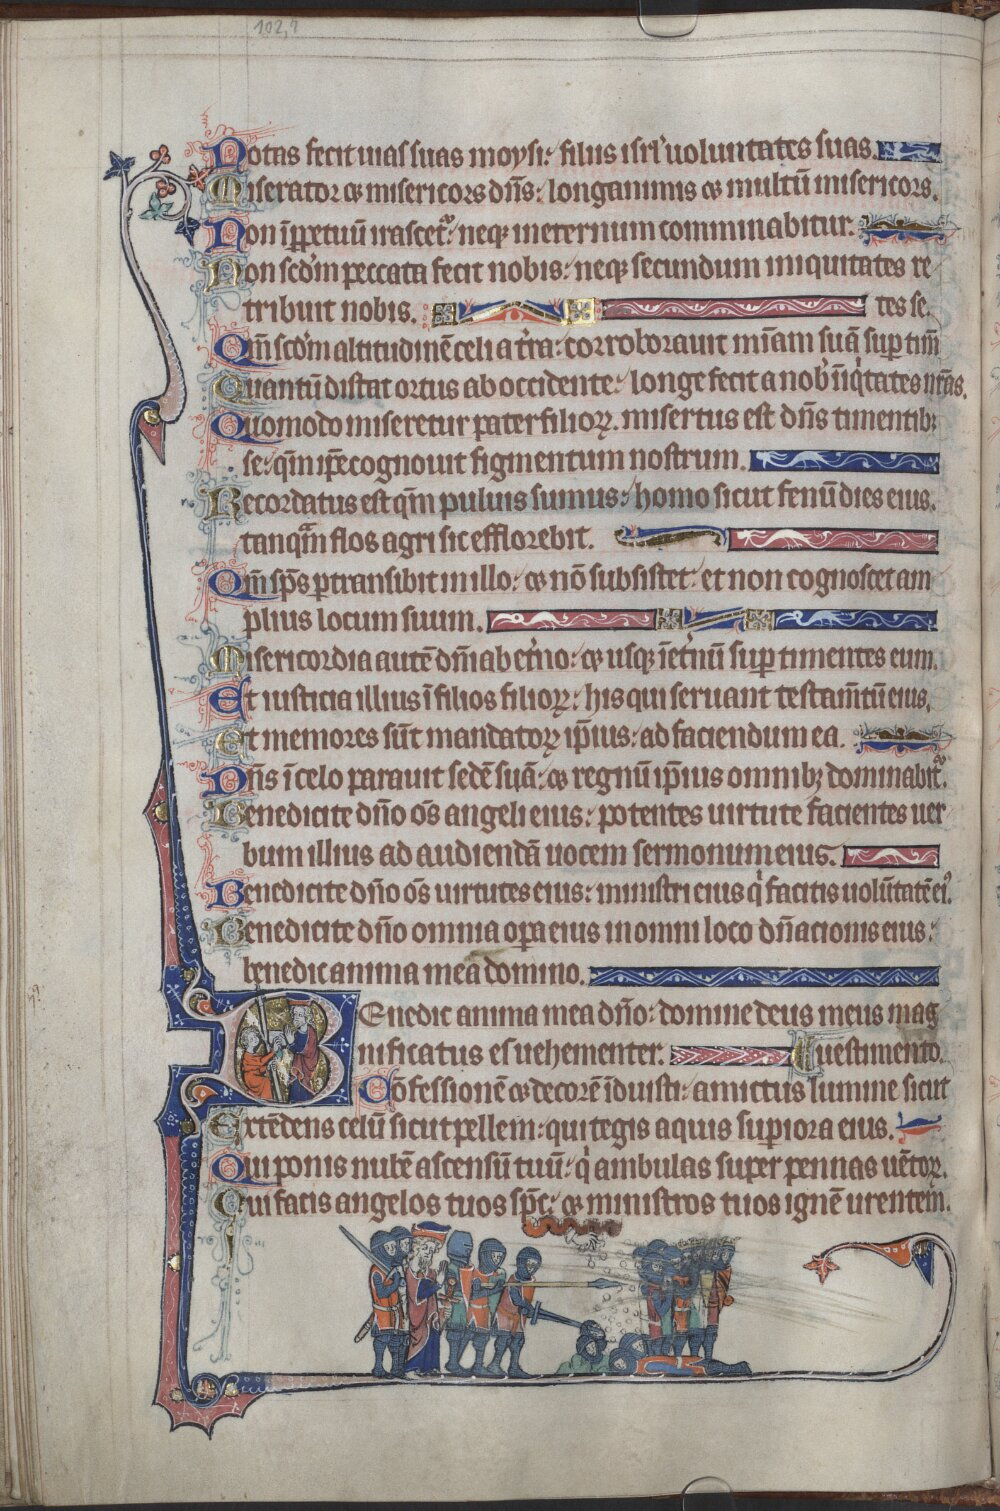 102,2
Notas fecit uias suas moysi: filiis isrl' uoluntates suas.
Miserator ⁊ misericors dn̄s: longanimis ⁊ multū misericors.
Non īꝑpetuū irascet᷑: neq; ineternum comminabitur.
Non scd'm peccata fecit nobis: neq; secundum iniquitates re
tribuit nobis. tes se.
Qm̄ scd'm altitudinē celi a t'ra: corroborauit mīam suā suꝑ timēn
Quantū distat ortus ab occidente: longe fecit a nob' īiq'tates nr̄as.
Quomodo miseretur pater filioꝝ. misertus est dn̄s timentib;
se: qm̄ ip̄e cognouit figmentum nostrum.
Recordatus est qm̄ puluis sumus: homo sicut fenū dies eius.
tanq̄m flos agri sic efflorebit.
Qm̄ sp̄s ꝑtransibit in illo: ⁊ nō subsistet: et non cognoscet am
plius locum suum.
Misericordia autē dn̄i ab et'no: ⁊ usq; īet'nū suꝑ timentes eum.
Et iusticia illius ī filios filioꝝ: his qui seruant testam̄tū eius.
Et memores sūt mandatoꝝ ip̄ius: ad faciendum ea.
Dn̄s ī celo parauit sedē suā: ⁊ regnū ip̄ius omnib; dominabit᷑.
Benedicite dn̄o om̄s angeli eius: potentes uirtute facientes uer
bum illius ad audiendā uocem sermonum eius.
Benedicite dn̄o om̄s uirtutes eius: ministri eius q' facitis uolūtatē ei'.
Benedicite dn̄o omnia oꝑa eius in omni loco dn̄acionis eius:
benedic anima mea domino.
Benedic anima mea dn̄o: domine deus meus mag
nificatus es uehementer. uestimento.
Cōfessionē ⁊ decorē īduisti: amictus lumine sicut
Extēdens celū sicut pellem: qui tegis aquis suꝑiora eius.
Qui ponis nubē ascensū tuū: q' ambulas super pennas uētoꝝ.
Qui facis angelos tuos sp̄c: ⁊ ministros tuos ignē urentem.